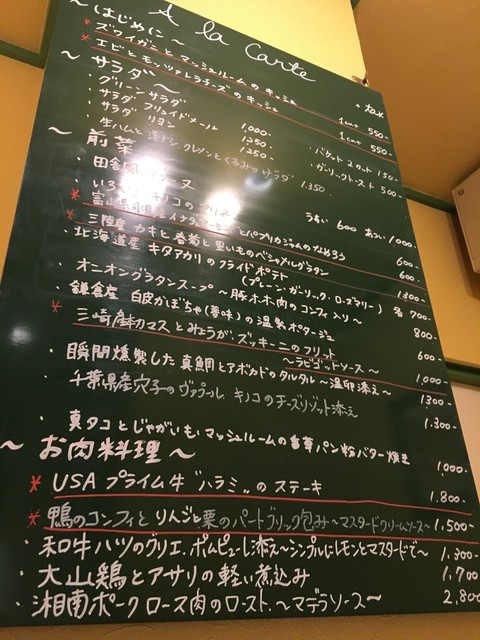 A la Carte
+tax
〜はじめに〜
* ズワイガニとマッシュルームのキッシュ 1cut 550-
* エビとモッツァレラチーズのキッシュ 1cut 550-
〜サラダ〜
・グリーンサラダ 1,000-
・サラダ フリュイドメール 1,250
・サラダ リヨン 1,250-
・バゲット 2カット 150-
・ガーリックトースト 500-
・生ハムと洋ナシ、クレソンとくるみのサラダ 1,350
〜前菜
・田舎風 うすい 600 あつい 1,000-
・いろ キノコの 600-
* 富山県氷見 イナダ とパプリカジャムのなめろう 600-
* 三陸産 カキと春菊と里いものベシャメルグラタン
・北海道産 キタアカリのフライドポテト 1300-
(プレーン・ガーリック・ローズマリー) 各 700-
・オニオングラタンスープ 〜豚ホホ肉のコンフィ入り〜 800-
・鎌倉産 白皮かぼちゃ(夢味)の温製ポタージュ 600-
* 三崎産カマスとみょうが、ズッキーニのフリット
〜ラビゴットソース〜 1,000-
・瞬間燻製した真鯛とアボカドのタルタル 〜温卵添え〜 1300-
・千葉県産穴子のヴァプール キノコのチーズリゾット添え 1.300-
・真タコとじゃがいも、マッシュルームの香草パン粉バター焼き 1000-
〜お肉料理〜
* USAプライム牛 "ハラミ" のステーキ 1.800-
* 鴨のコンフィと りんごと栗のパートブリック包み 〜マスタードクリームソース〜 1,500-
・和牛ハツのグリエ、ポムピューレ添え 〜シンプルにレモンとマスタードで〜 1,300-
・大山鶏とアサリの軽い煮込み 1,700
・湘南ポーク ロース肉のロースト 〜マデラソース〜 2,800